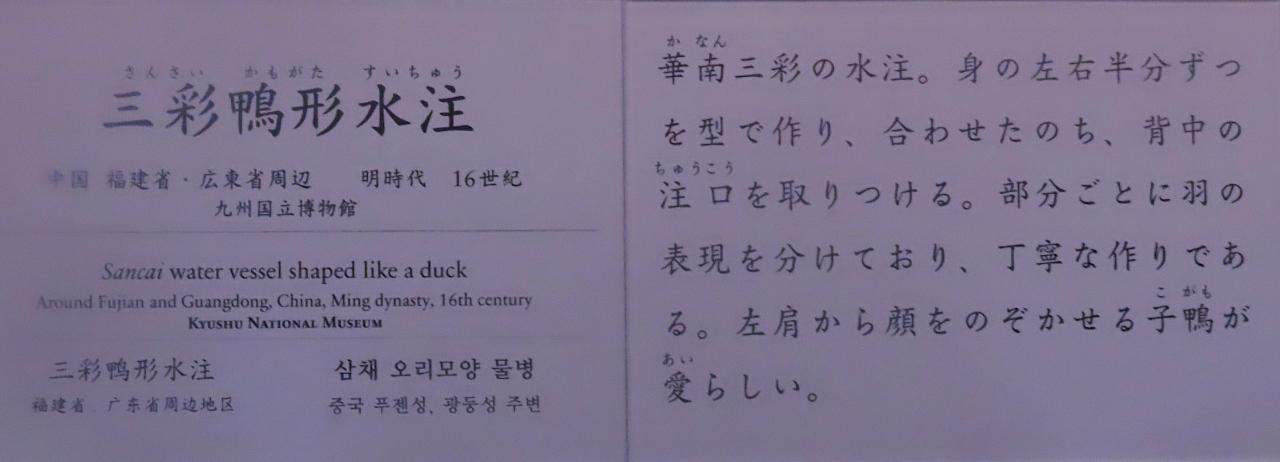 さんさい かもがた すいちゅう
三彩鴨形水注
中国 福建省・広東省周辺 明時代 16世紀
九州国立博物館
Sancai water vessel shaped like a duck
Around Fujian and Guangdong, China, Ming dynasty, 16th century
KYUSHU NATIONAL MUSEUM
三彩鸭形水注
福建省 广东省周边地区
삼채 오리모양 물병
중국 푸젠성, 광둥성 주변
か なん
華南三彩の水注。身の左右半分ずつ
を型で作り、合わせたのち、背中の
ちゅうこう
注口を取りつける。部分ごとに羽の
表現を分けており、丁寧な作りであ
こ がも
る。左肩から顔をのぞかせる子鴨が
あい
愛らしい。